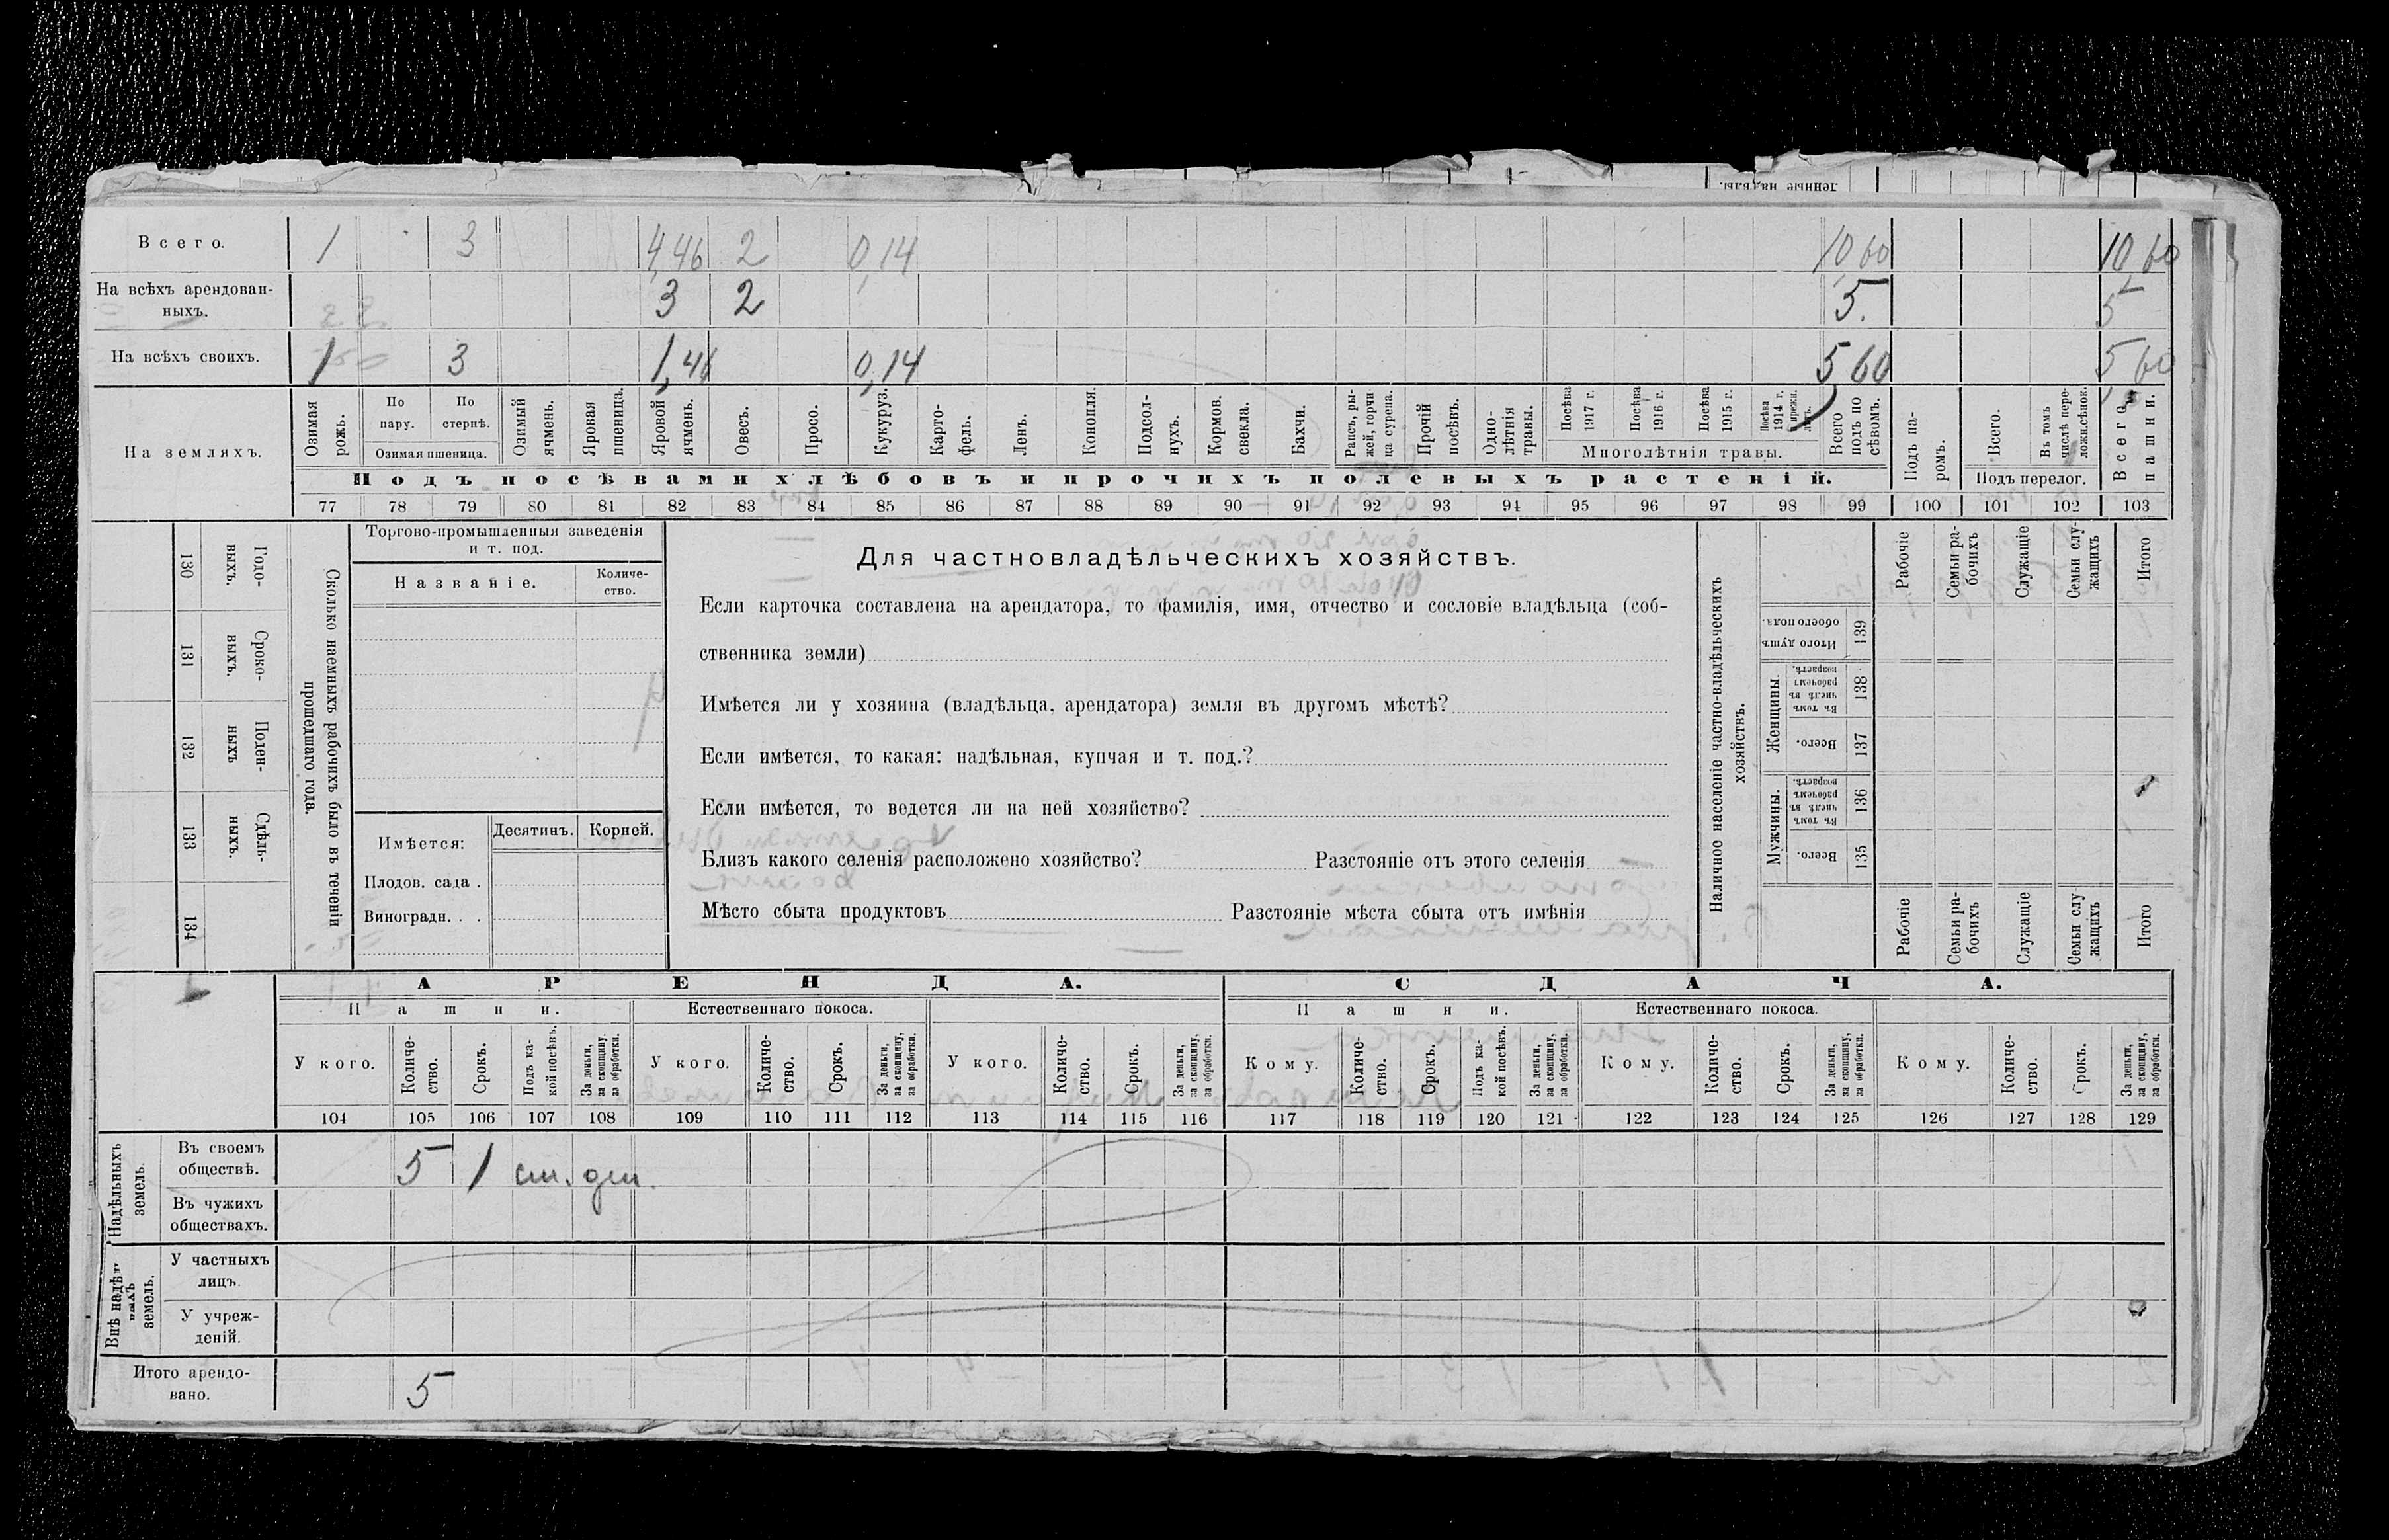 Всего. 1 3 4,46 2 0,14 10,60 10,60
На всѣхъ арендован-
ныхъ. 3 2 5. 5
На всѣхъ своихъ. 1 3 1,46 0,14 5,60 5,60
На земляхъ.
Озимая рожь.
По пару.
По стернѣ.
Озимая пшеница.
Озимый ячмень.
Яровая пшеница.
Яровой ячмень.
Овесъ.
Просо.
Кукуруз.
Карто-
фель.
Ленъ.
Конопля.
Подсол-
нухъ.
Кормов. свекла.
Бахчи.
Рапсъ, ры-
жей, горчи
ца сурепа.
Прочій посѣвъ.
Одно-
лѣтнія
травы.
Посѣва 1917 г.
Посѣва 1916 г.
Посѣва 1915 г.
Посѣва 1914 г.
Многолѣтнія травы.
Всего подъ по
сѣвомъ.
Подъ па-
ромъ.
Всего.
Въ томъ числѣ пере-
Подъ перелог.
Всего пашни.
Подъ посѣвами хлѣбовъ и прочихъ полевыхъ растеній.
77 78 79 80 81 82 83 84 85 86 87 88 89 90 91 92 93 94 95 96 97 98 99 100 101 102 103
130 Годо-
выхъ.
131 Сроко-
выхъ.
132 Поден-
ныхъ
133 Сдѣль-
ныхъ.
134
Сколько наемныхъ рабочихъ было въ теченіи
прошедшаго года.
Торгово-промышленныя заведенія
и т. под.
Названіе. Количе-
ство.
Имѣется: Десятинъ. Корней.
Плодов. сада .
Виноградн. . .
Для частновладѣльческихъ хозяйствъ.
Если карточка составлена на арендатора, то фамилія, имя, отчество и сословіе владѣльца (соб-
ственника земли)
Имѣется ли у хозяина (владѣльца, арендатора) земля въ другомъ мѣстѣ?
Если имѣется, то какая: надѣльная, купчая и т. под.?
Если имѣется, то ведется ли на ней хозяйство?
Близъ какого селенія расположено хозяйство? Разстояніе отъ этого селенія
Мѣсто сбыта продуктовъ Разстояніе мѣста сбыта отъ имѣнія
Наличное населеніе частно-владѣльческихъ
хозяйствъ.
Рабочіе
Семьи ра-
бочихъ
Служащіе
Семьи слу-
жащихъ
Итого
Итого душъ
обоего пола.
139
Женщины.
Въ томъ
числѣ въ
рабочемъ
возрастѣ.
138
Всего.
137
Мужчины.
Въ томъ
числѣ въ
рабочемъ
возрастѣ.
136
Всего.
135
Рабочіе
Семьи ра-
бочихъ
Служащіе
Семьи слу
жащихъ
Итого
АРЕНДА. СДАЧА.
Пашни. Естественнаго покоса. Пашни. Естественнаго покоса.
У кого.
Количе-
ство.
Срокъ.
Подъ ка-
кой посѣвъ.
За деньги,
за скопщину,
за обработки.
У кого.
Количе-
ство.
Срокъ.
За деньги,
за скопщину,
за обработки.
У кого.
Количе-
ство.
Срокъ.
За деньги,
за скопщину,
за обработки.
Кому.
Количе-
ство.
Срокъ.
Подъ ка-
кой посѣвъ.
За деньги,
за скопщину,
за обработки.
Кому.
Количе-
ство.
Срокъ.
За деньги,
за скопщину,
за обработки.
Кому.
Количе-
ство.
Срокъ.
За деньги,
за скопщину,
за обработки.
104 105 106 107 108 109 110 111 112 113 114 115 116 117 118 119 120 121 122 123 124 125 126 127 128 129
Надѣльныхъ
земель.
Въ своемъ
обществѣ. 5 1
Въ чужихъ
обществахъ.
Внѣ
земель.
У частныхъ
лицъ.
У учреж-
деній.
Итого арендо-
вано. 5